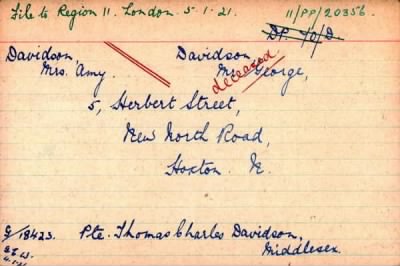 File to Region 11. London. 5.1.21. 11/PP/20356.
DP. 40/D.
Davidson, Davidson,
Mrs. Amy. Mr. George,
deceased
5, Herbert Street,
New North Road,
Hoxton. N.
G/18423. Pte. Thomas Charles Davidson,
Middlesex.